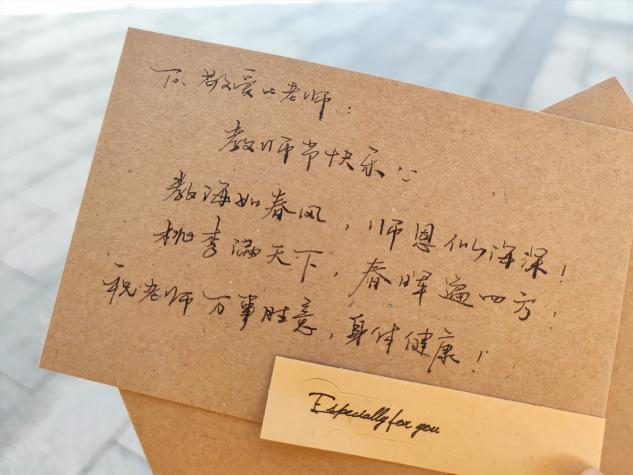 To 敬爱的老师:
教师节快乐!:
教海如春风,师恩似海深!
桃李满天下,春晖遍四方,
祝老师万事胜意,身体健康!
Especially for you